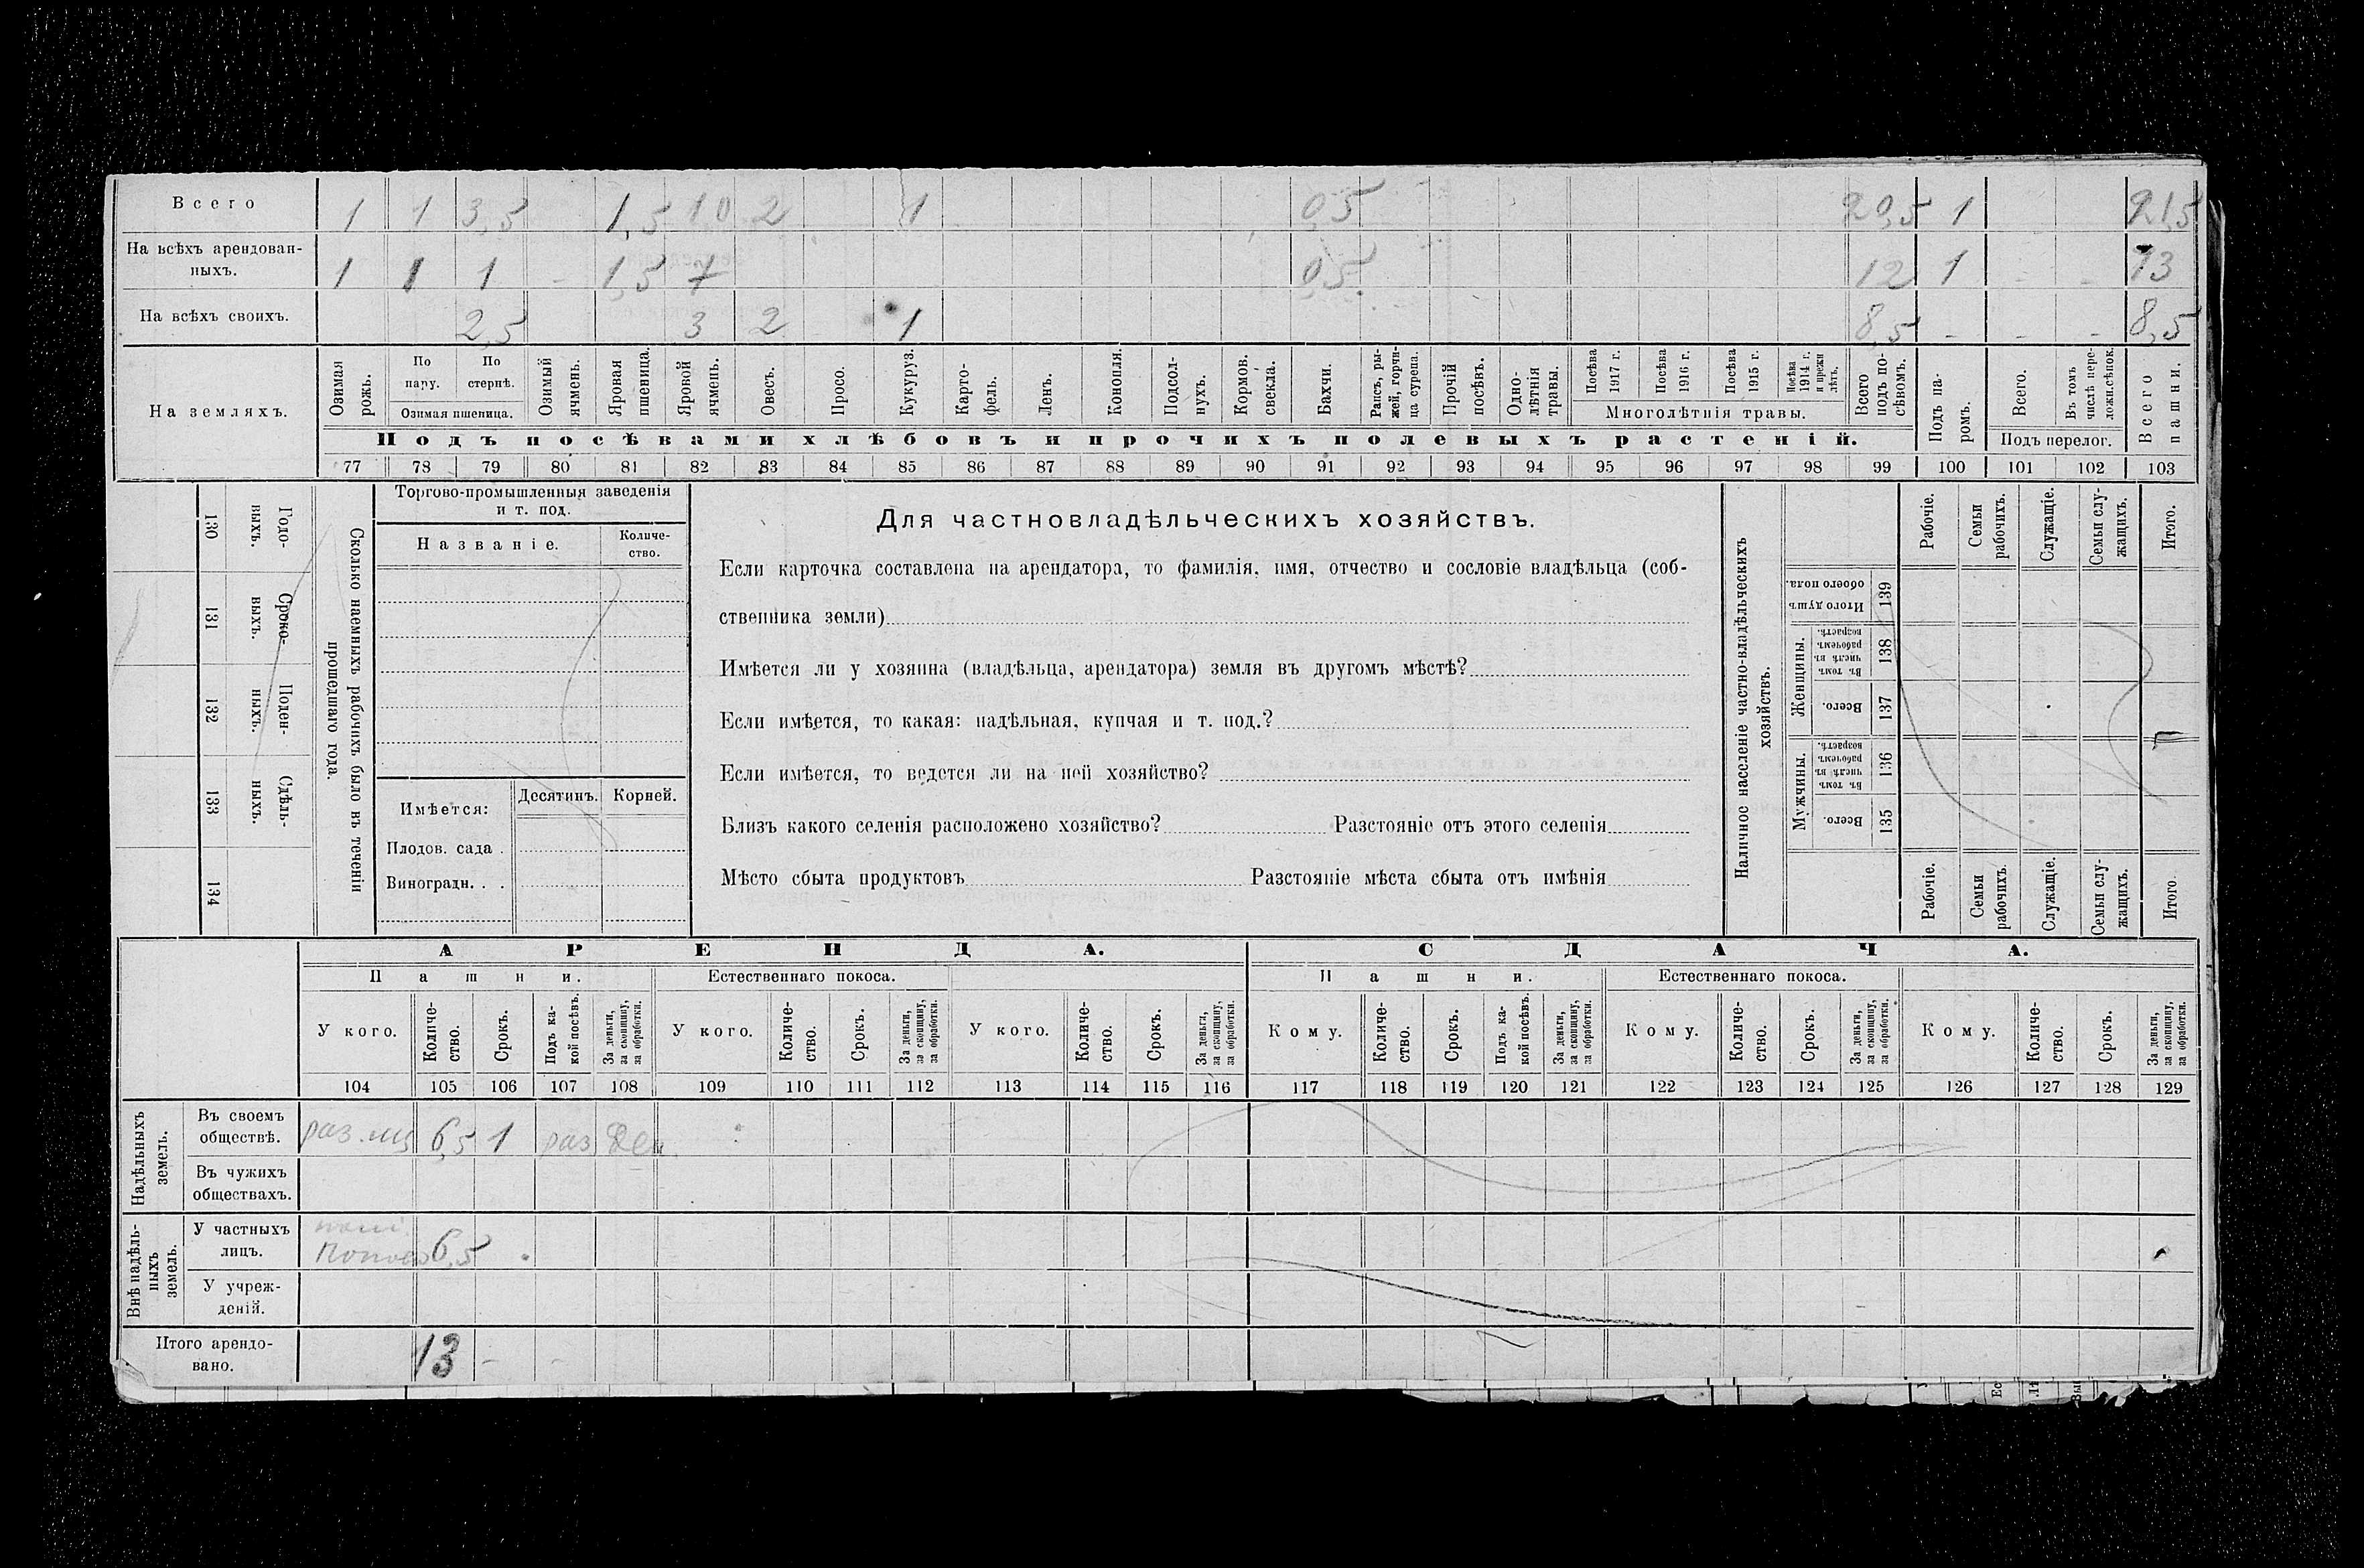 Всего 1 1 3,5 1,5 10 2 1 0,5 20,5 1 21,5
На всѣхъ арендован-
ныхъ. 1 1 1 - 1,5 7 0,5 12 1 - - 13
На всѣхъ своихъ. 2,5 3 2 1 8,5 - - - 8,5
На земляхъ.
Озимая рожь.
По пару.
По стернѣ.
Озимая пшеница.
Озимый ячмень.
Яровая пшеница.
Яровой ячмень.
Овесъ.
Просо.
Кукуруз.
Карто-
фель.
Ленъ.
Конопля.
Подсол-
нухъ.
Кормов.
свекла.
Бахчи.
Рапсъ, ры-
жей, горчи-
ца сурепа.
Прочій
посѣвъ.
Одно-
лѣтнія
травы.
Посѣва
1917 г.
Посѣва
1916 г.
Посѣва
1915 г.
Посѣва
1914 г.
и прежн
лѣтъ.
Многолѣтнія травы.
Всего
подъ по-
сѣвомъ.
Подъ па-
ромъ.
Всего.
Въ томъ
числѣ пере-
ложн.сѣнок.
Подъ перелог.
Всего
пашни.
Подъ посѣвами хлѣбовъ и прочихъ полевыхъ растеній.
77 78 79 80 81 82 83 84 85 86 87 88 89 90 91 92 93 94 95 96 97 98 99 100 101 102 103
130 Годо-
выхъ.
131 Сроко-
выхъ.
132 Поден-
ныхъ.
133 Сдѣль-
ныхъ.
134
Сколько наемныхъ рабочихъ было въ теченіи
прошедшаго года.
Торгово-промышленныя заведенія
и т. под.
Названіе.
Количе-
ство.
Имѣется:
Десятинъ.
Корней.
Плодов. сада .
Виноградн. . .
Для частновладѣльческихъ хозяйствъ.
Если карточка составлена на арендатора, то фамилія, имя, отчество и сословіе владѣльца (соб-
ственника земли)
Имѣется ли у хозяина (владѣльца, арендатора) земля въ другомъ мѣстѣ?
Если имѣется, то какая: надѣльная, купчая и т. под.?
Если имѣется, то ведется ли на ней хозяйство?
Близъ какого селенія расположено хозяйство? Разстояніе отъ этого селенія
Мѣсто сбыта продуктовъ Разстояніе мѣста сбыта отъ имѣнія
Наличное населеніе частно-владѣльческихъ
хозяйствъ.
Рабочіе.
Семьи
рабочихъ.
Служащіе.
Семьи слу-
жащихъ.
Итого.
Итого душъ
обоего пола.
139
Женщины.
Въ томъ
числѣ въ
рабочемъ
возрастѣ.
138
Всего.
137
Мужчины.
Въ томъ
числѣ въ
рабочемъ
возрастѣ.
136
Всего.
135
Рабочіе.
Семьи
рабочихъ.
Служащіе.
Семьи слу-
жащихъ.
Итого.
АРЕНДА. СДАЧА.
Пашни. Естественнаго покоса. Пашни. Естественнаго покоса.
У кого.
Количе-
ство.
Срокъ.
Подъ ка-
кой посѣвъ.
За деньги,
за скопщину,
за обработки.
У кого.
Количе-
ство.
Срокъ.
За деньги,
за скопщину,
за обработки.
У кого.
Количе-
ство.
Срокъ.
За деньги,
за скопщину,
за обработки.
Кому.
Количе-
ство.
Срокъ.
Подъ ка-
кой посѣвъ.
За деньги,
за скопщину,
за обработки.
Кому.
Количе-
ство.
Срокъ.
За деньги,
за скопщину,
за обработки.
Кому.
Количе-
ство.
Срокъ.
За деньги,
за скопщину,
за обработки.
104 105 106 107 108 109 110 111 112 113 114 115 116 117 118 119 120 121 122 123 124 125 126 127 128 129
Надѣльныхъ
земель.
Въ своемъ
обществѣ. 6,5 1 раз Ден.
Въ чужихъ
обществахъ.
Внѣ надѣль-
ныхъ
земель.
У частныхъ
лицъ. 6,5
У учреж-
деній.
Итого арендо-
вано. 13 - -